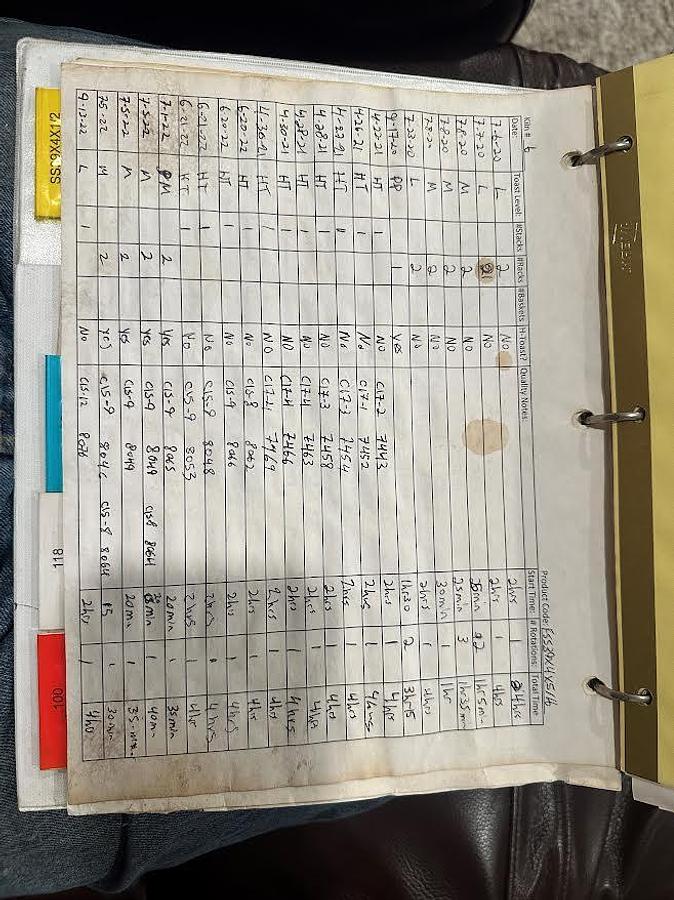 Kiln # 6 Product Code: FSS39X4X5/4
Date: Toast Level: #Stacks #Racks #Baskets H-Toast? Quality Notes Start Time: # Rotations: Total Time
7-6-20 L 2 No 2hrs 1 4hrs
7-7-20 L No 2hrs 1 4hrs
7-8-20 M 2 No 1hr 5min
7-8-20 M 2 No 25min 3 1hr 35min
7-8-20 M 2 No 30min 1 1hr
7-23-20 L 2 No 2hrs 1 4hrs
9-17-20 1 yes 1hr30 2 3hr15
4-23-21 HT 1 No C17-2 7443 2hrs 1 4hrs
4-26-21 HT 1 No C17-1 7452 2hrs 1 4hrs
HT No C17-3 7454 2hrs 1 4hrs
4-28-21 HT 1 No C17-3 7458 2hrs 1 4hrs
4-28-21 HT 1 No C17-4 7463 2hrs 1 4hrs
4-30-21 HT 1 NO C17-4 7466 2hrs 1 4hrs
HT 1 NO C17-4 7469 2hrs 1 4hrs
6-20-22 HT 1 No C15-8 8062 2hr 1 4hr
6-20-22 HT 1 No C15-9 8066 2hrs 1 4hrs
6-21-22 HT 1 No C15-9 8048 4hrs
6-21-22 HT 1 C15-9 8053 2hrs 1 4hr
7-1-22 M 2 Yes C15-9 20min 1 35min
7-5-22 M 2 yes C15-9 8049 C15-8 8064 1 40min
7-5-22 M 2 yes C15-9 8049 20min 1 35min
7-5-22 M 2 yes C15-9 C15-8 8064 15 1
9-13-22 L 1 No C15-12 8076 2hr 1 4hr
SSR9X4X12
118
100